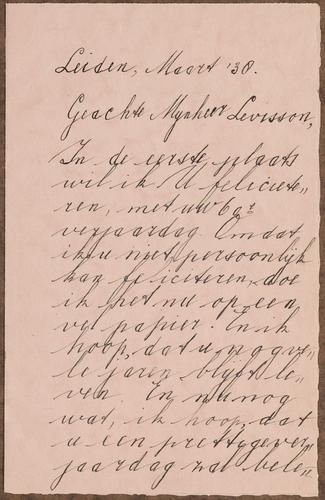 Leiden, Maart '38.
Geachte Mynheer Levisson,
In de eerste plaats
wil ik U felicite„
ren, met uw 60st
verjaardag. Omdat
ik u niet persoonlijk
kan feliciteren, doe
ik het nu op een
vel papier. En ik
hoop, dat u nog ve„
le jaren blyft le„
ven. En nu nog
wat, ik hoop, dat
u een prettige ver„
jaardag zal bele„